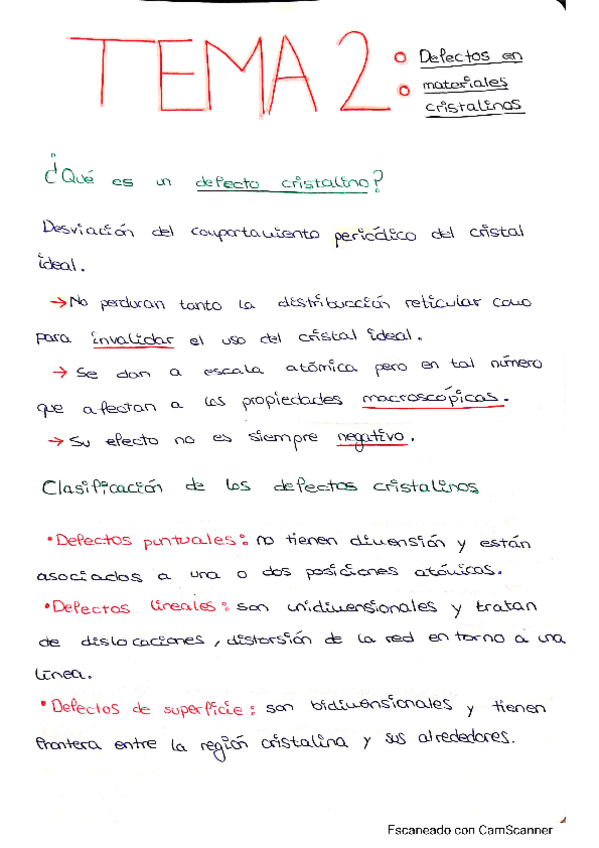 TEMA 2: Defectos en
materiales
cristalinos
¿Qué es un defecto cristalino?
Desviación del comportamiento periódico del cristal
ideal.
→ No perduran tanto la distribucción reticular como
para invalidar el uso del cristal ideal.
→ Se dan a escala atómica pero en tal número
que afectan a las propiedades macroscópicas.
→ Su efecto no es siempre negativo.
Clasificación de los defectos cristalinos
• Defectos puntuales: no tienen dimensión y están
asociados a una o dos posiciones atómicas.
• Defectos lineales: son unidimensionales y tratan
de dislocaciones, distorsión de la red en torno a una
línea.
• Defectos de superficie: son bidimensionales y tienen
frontera entre la región cristalina y sus alrededores.
Escaneado con CamScanner